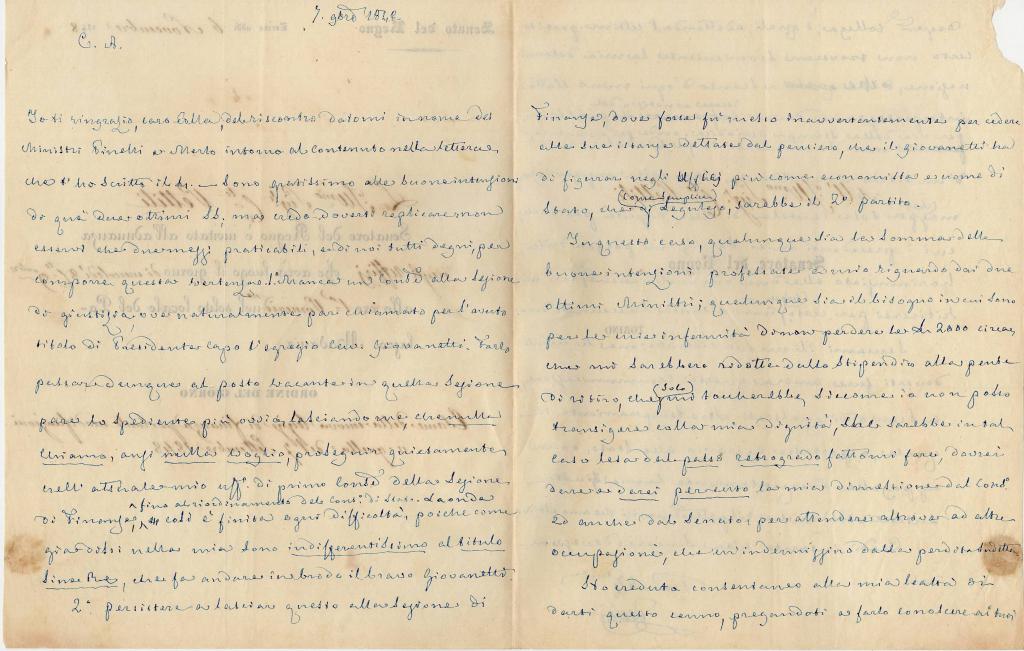 7. 9bre 1848
C. A.
Io ti ringrazio, caro Colla, del riscontro datomi in nome dei
Ministri Pinelli e Merlo intorno al Contenuto nella lettera
che t'ho scritto il 4. — Sono gratissimo alle buone intenzioni
di que' due ottimi SS, ma credo doversi replicare non
esservi che due mezzi praticabili, e di noi tutti degni, per
comporre questa vertenza. 1°. Manca un Consre alla Sezione
di giustizia, ove naturalmente pare chiamato per l'avuto
titolo di Presidente Capo l'egregio Cav. Giovanetti. Farlo
passare dunque al posto vacante in quella Sezione
pare lo spediente più ovvio, lasciando me che nulla
chiamo, anzi nulla voglio, proseguir quietamente
nell' attuale mio uff. di primo Consre della Sezione
fino al riordinamento del Consº. di Stato. Laonde
di Finanze, così è finita ogni difficoltà, poiché come
già dissi nella mia sono indifferentissimo al titolo
Sine Re, che fa andare in broda il bravo Giovanetti.
2°. persistere a lasciar questo alla Sezione di
Finanze, dove forse fu messo inavvertentemente per cedere
alle sue istanze dettate dal pensiero, che il giovanetti ha
di figurar negli Uffizj più come economista e uomo di
(Come Semplice)
Stato, che di Leguleio, sarebbe il 2°. partito.
In questo caso, qualunque sia la Somma delle
buone intenzioni professate a mio riguardo dai due
ottimi Ministri; qualunque sia il bisogno in cui sono
per le mie infermità di non perdere le L. 2000 circa,
che mi sarebbero ridotte dallo Stipendio alla pens.
(Solo)
di ritiro, che toccherebbe, siccome io non posso
transigere colla mia dignità, che sarebbe in tal
caso lesa dal passo retrogrado fattomi fare, dovrei
dare e darei per certo la mia dimissione dal Consº.
ed anche dal Senato, per attendere altrove ad altre
occupazioni, che m'indennizzino dalla perdita suddetta
Ho creduto consentaneo alla mia lealtà di
darti questo cenno, pregandoti a farlo conoscere ai tuoi